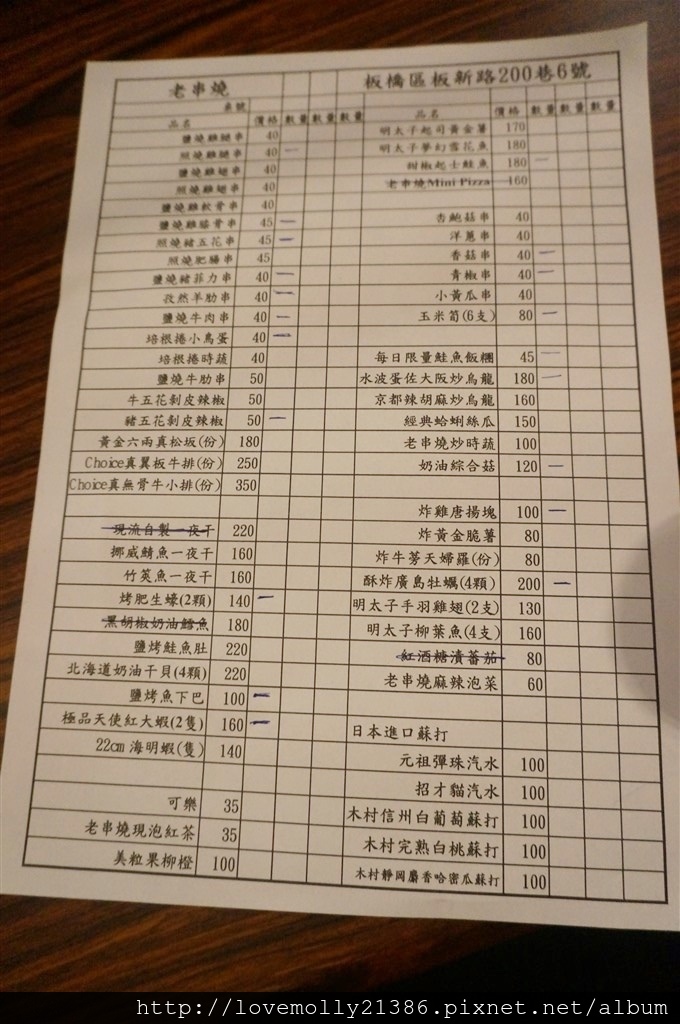 老串燒 板橋區板新路200巷6號
桌號
品名 價格 數量 數量 數量 品名 價格 數量 數量 數量
鹽燒雞腿串 40 明太子起司黃金薯 170
照燒雞腿串 40 明太子夢幻雪花魚 180
鹽燒雞翅串 40 甜椒起士鮭魚 180
照燒雞翅串 40 老串燒Mini Pizza 160
鹽燒雞軟骨串 40
鹽燒雞脆骨串 45 杏鮑菇串 40
照燒豬五花串 45 洋蔥串 40
照燒肥腸串 45 香菇串 40
鹽燒豬菲力串 40 青椒串 40
孜然羊肋串 40 小黃瓜串 40
鹽燒牛肉串 40 玉米筍(6支) 80
培根捲小鳥蛋 40
培根捲時蔬 40 每日限量鮭魚飯糰 45
鹽燒牛肋串 50 水波蛋佐大阪炒烏龍 180
牛五花剝皮辣椒 50 京都辣胡麻炒烏龍 160
豬五花剝皮辣椒 50 經典蛤蜊絲瓜 150
黃金六兩真松坂(份) 180 老串燒炒時蔬 100
Choice真翼板牛排(份) 250 奶油綜合菇 120
Choice真無骨牛小排(份) 350
炸雞唐揚塊 100
現流自製一夜干 220 炸黃金脆薯 80
挪威鯖魚一夜干 160 炸牛蒡天婦羅(份) 80
竹筴魚一夜干 160 酥炸廣島牡蠣(4顆) 200
烤肥生蠔(2顆) 140 明太子手羽雞翅(2支) 130
黑胡椒奶油鱈魚 180 明太子柳葉魚(4支) 160
鹽烤鮭魚肚 220 紅酒糖漬蕃茄 80
北海道奶油干貝(4顆) 220 老串燒麻辣泡菜 60
鹽烤魚下巴 100
極品天使紅大蝦(2隻) 160 日本進口蘇打
22cm 海明蝦(隻) 140 元祖彈珠汽水 100
招才貓汽水 100
可樂 35 木村信州白葡萄蘇打 100
老串燒現泡紅茶 35 木村完熟白桃蘇打 100
美粒果柳橙 100 木村靜岡麝香哈密瓜蘇打 100
http://lovemolly21386.pixnet.net/album